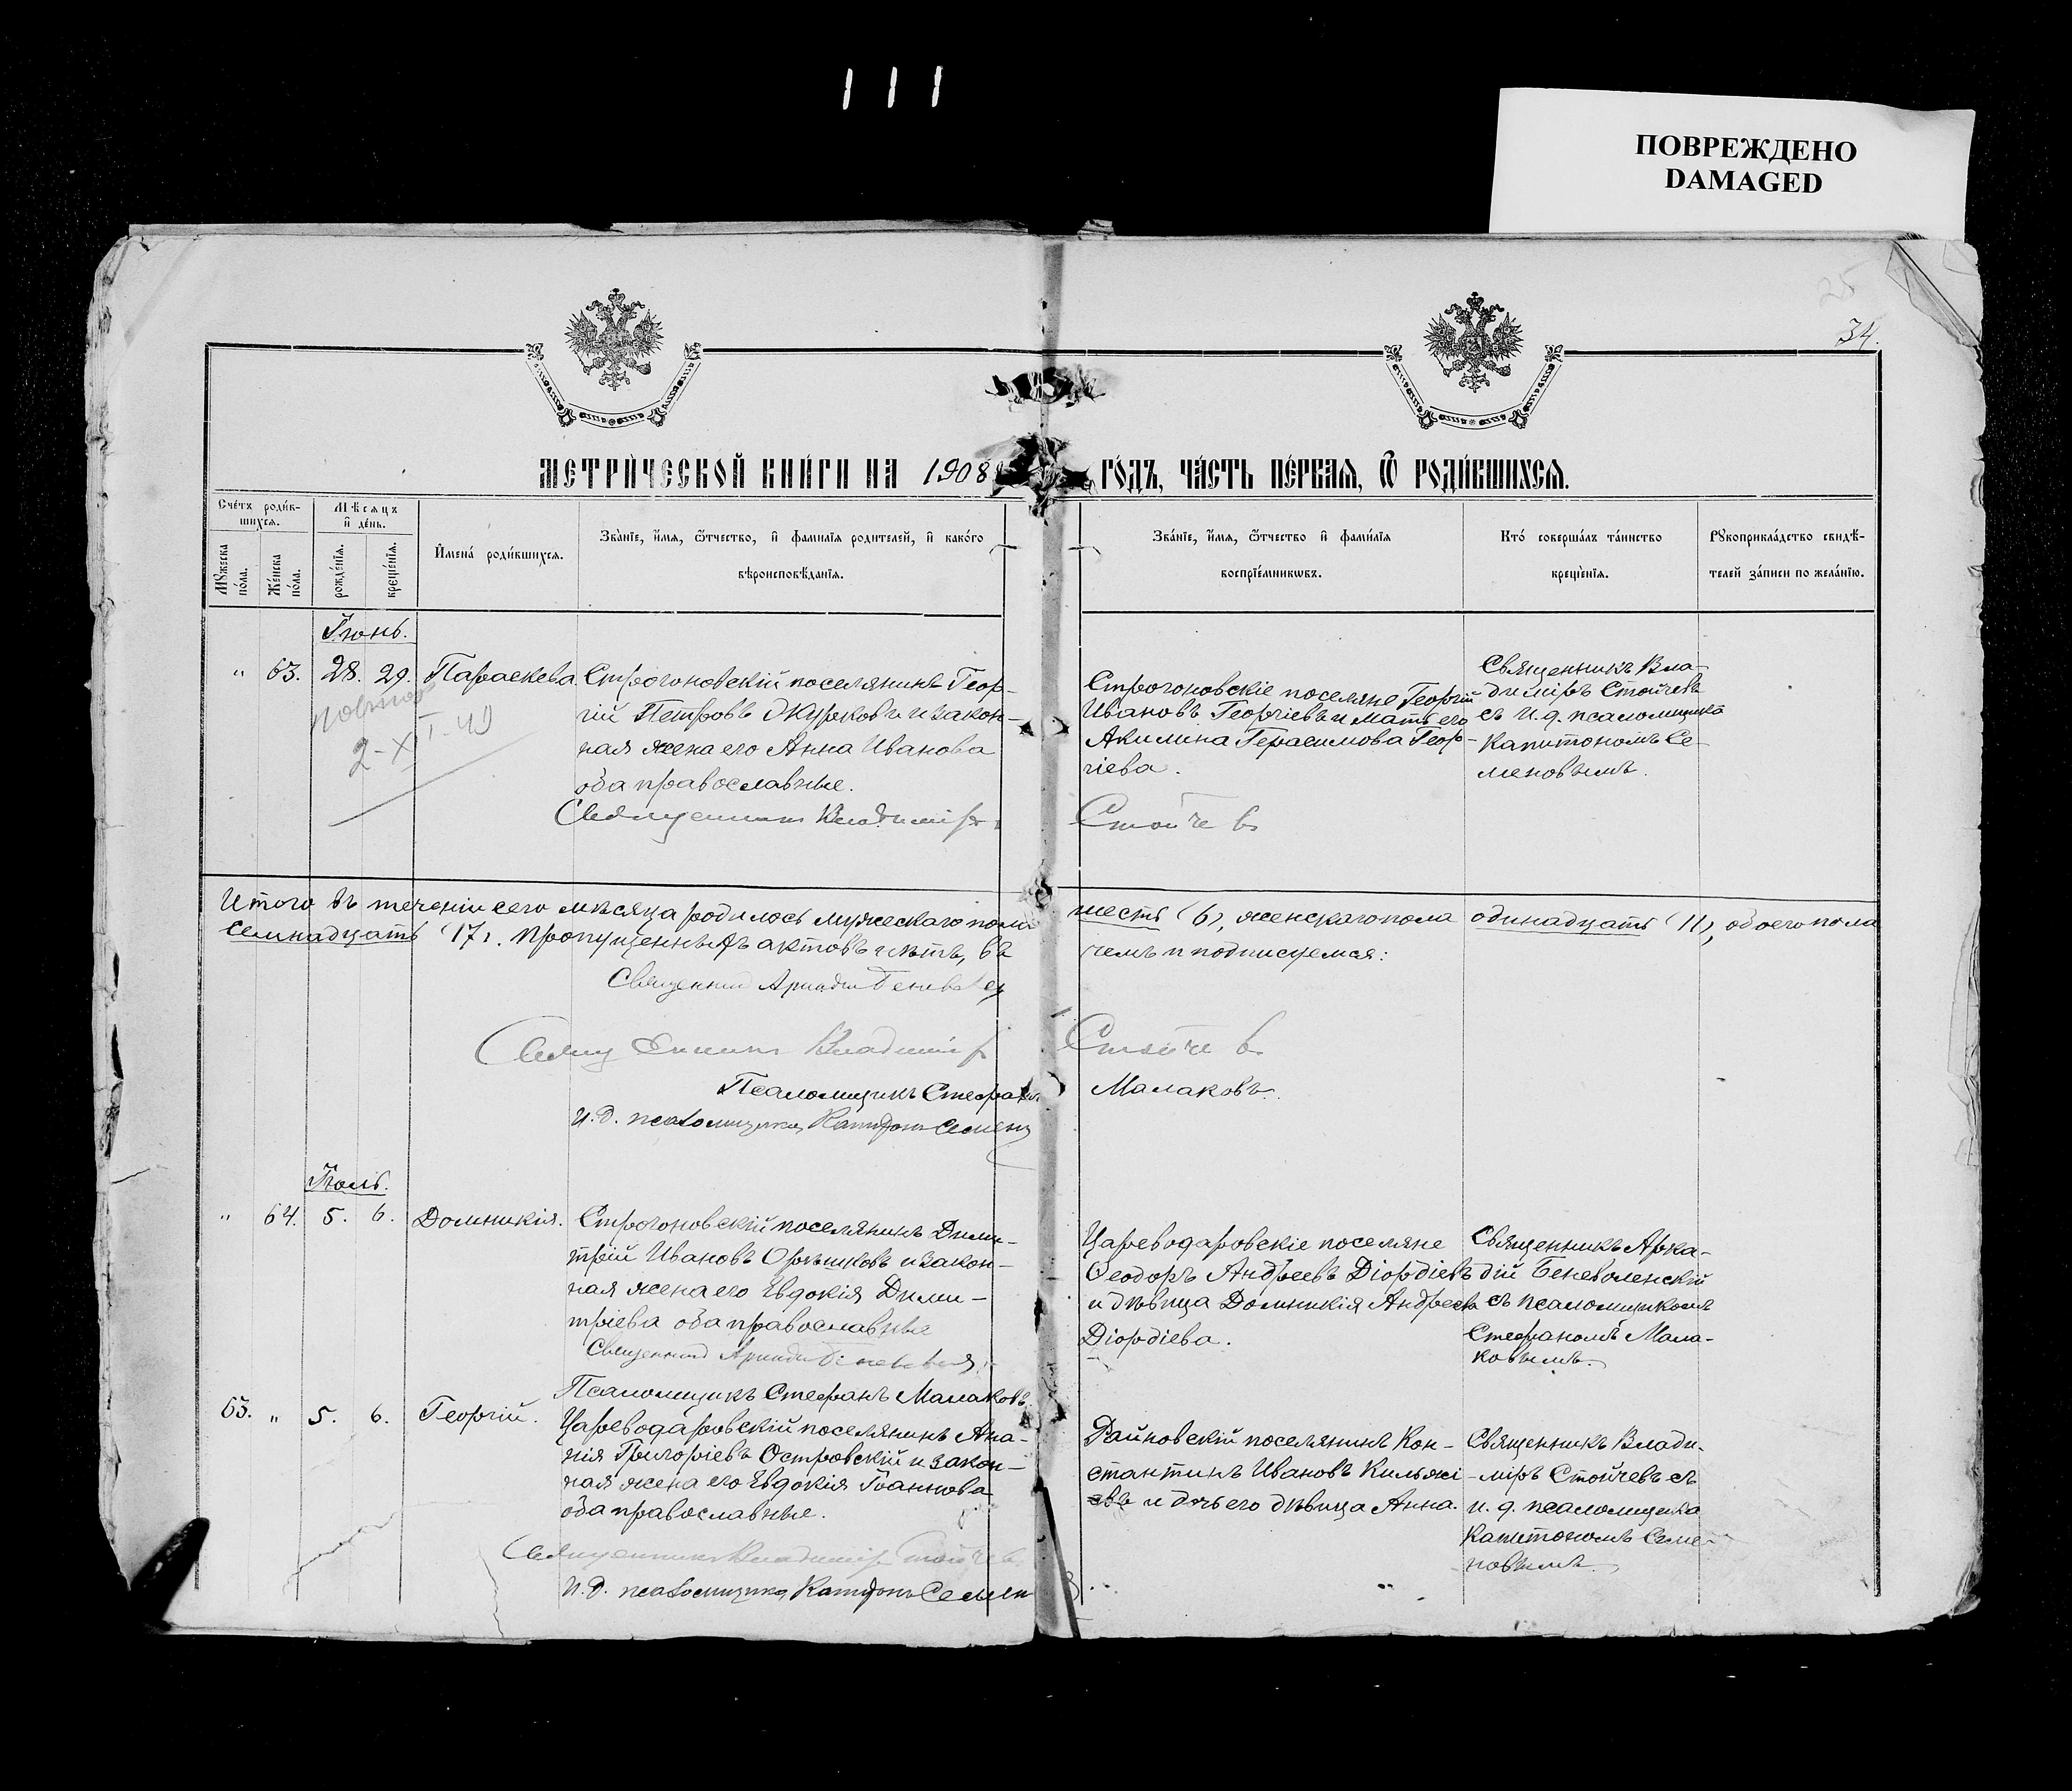 111
ПОВРЕЖДЕНО
DAMAGED
25
34.
МЕТРИ́ЧЕСКОЙ КНИ́ГИ НА 1908
ГО́ДЪ, ЧА́СТЬ ПЕ́РВАѦ, Ѽ РОДИ́ВШИХСѦ.
Сче́тъ роди́в-
шихсѧ.
Мꙋ́жеска по́ла.
Же́нска по́ла.
Мѣ́сѧцъ
и҆ де́нь.
рожде́нїѧ.
креще́нїѧ.
И҆мена̀ роди́вшихсѧ.
Зва́нїе, и҆́мѧ, ѻ҆́тчество, и҆ фами́лїѧ роди́телей, и҆ како́гѡ
вѣроисповѣ́данїѧ.
Зва́нїе, и҆́мѧ, ѻ҆́тчество и҆ фами́лїѧ
воспрїе́мникѡвъ.
Кто̀ соверша́лъ та́инство
креще́нїѧ.
Рꙋкоприкла́дство свидѣ́-
телей за́писи по жела́нїю.
Іюнь.
" 63. 28. 29. Параскева.
Строгоновскій поселянинъ Геор-
гій Петровъ Окурковъ и закон-
ная жена его Анна Иванова
оба православные.
Священникъ Владиміръ Стойчевъ
Строгоновскіе поселяне Георгій
Ивановъ Георгіевъ и мать его
Акилина Герасимова Геор-
гіева.
Священникъ Вла-
диміръ Стойчевъ
съ и. д. псаломщика
Капитономъ Се-
меновымъ.
2-XII-40
Итого въ теченіи сего мѣсяца родилось мужескаго пола шесть (6), женскаго пола одинадцать (11), обоего пола
семнадцать (17). Пропущенныхъ актовъ нѣтъ, въ чемъ и подписуемся:
Священникъ Аркадій
Священникъ Владиміръ Стойчевъ
Псаломщикъ Стефанъ Малаковъ.
И. д. псаломщика Капитонъ Семен
Іюль.
" 64. 5. 6. Домникія.
Строгоновскій поселянинъ Дими-
трій Ивановъ Орѣшковъ и закон-
ная жена его Евдокія Дими-
тріева оба православные
Священникъ Аркадій
Псаломщикъ Стефанъ Малаковъ.
Цареводаровскіе поселяне
Ѳеодоръ Андреевъ Діордіевъ
и дѣвица Домникія Андреева
Діордіева.
Священникъ Арка-
дій Беневоленскій
съ псаломщикомъ
Стефаномъ Мала-
ковымъ.
65. " 5. 6. Георгій.
Цареводаровскій поселянинъ Ана-
нія Григоріевъ Островскій и закон-
ная жена его Евдокія Іоаннова
оба православные.
Священникъ Владиміръ Стойчевъ
И. д. псаломщика Капитонъ Семен
Райновскій поселянинъ Кон-
стантинъ Ивановъ Кильжі-
евъ и дочь его дѣвица Анна.
Священникъ Влади-
міръ Стойчевъ съ
и. д. псаломщика
Капитономъ Семе-
новымъ.